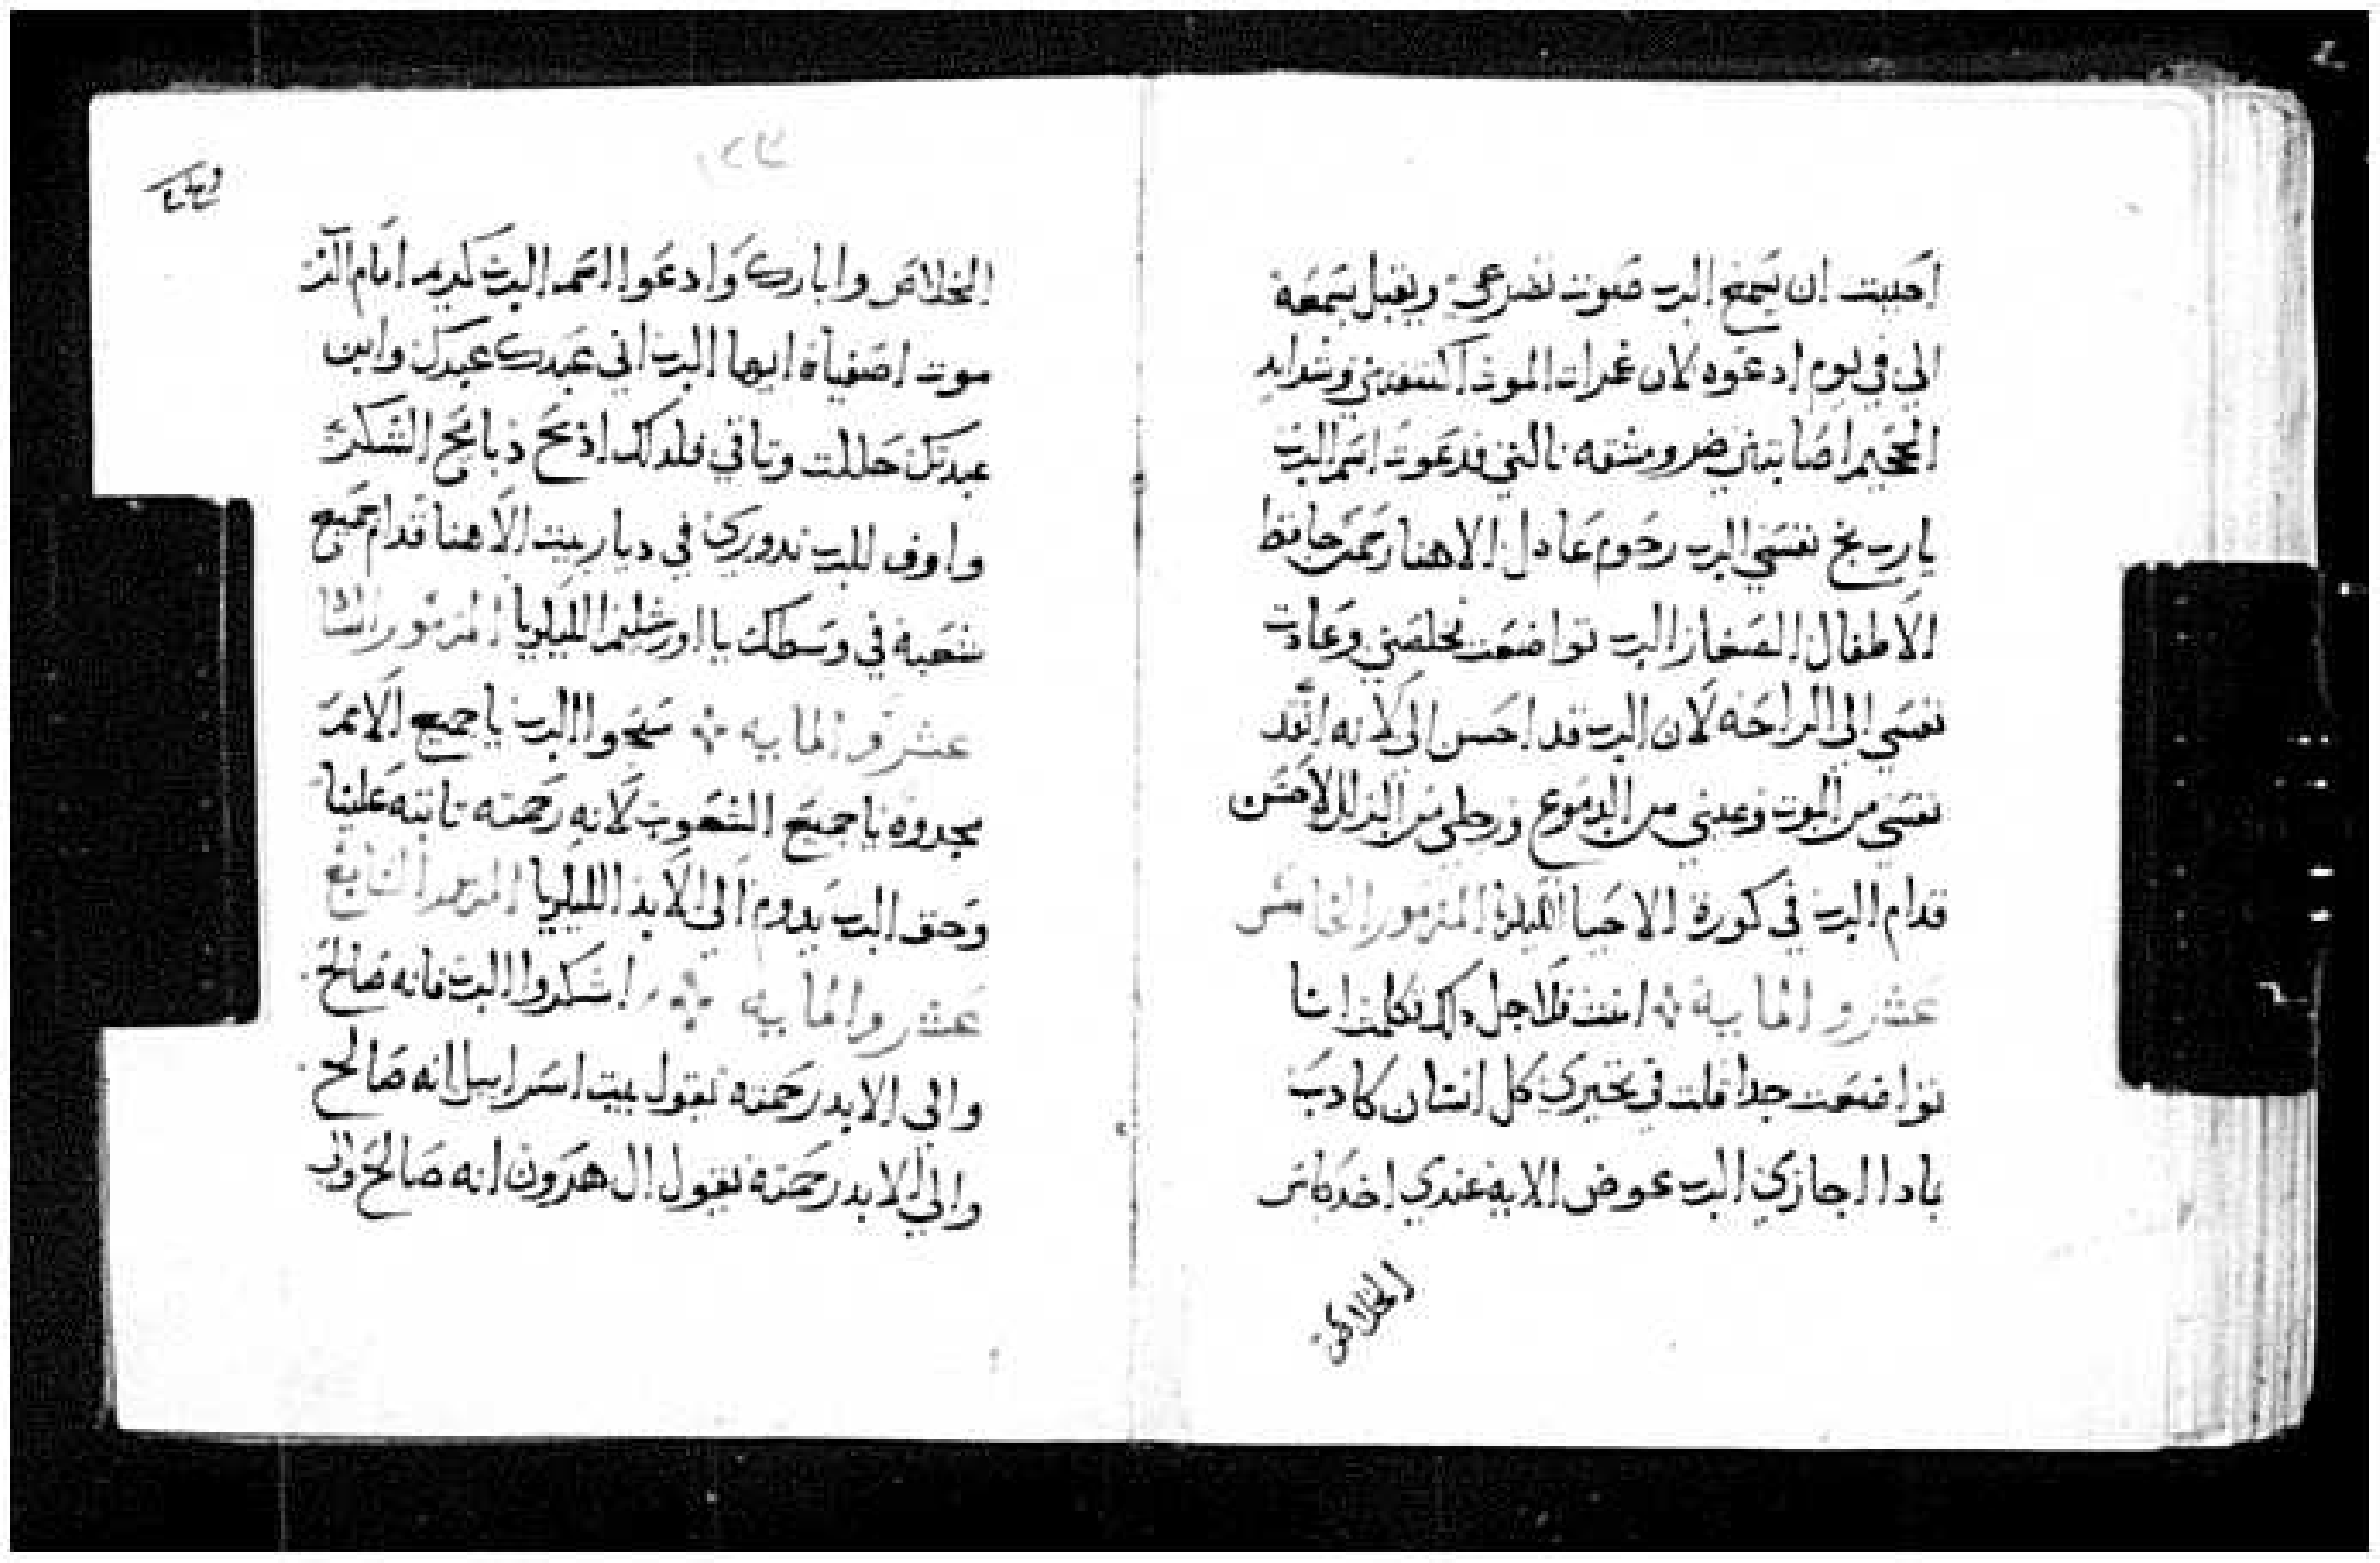 احببت ان يسمع الرب صوت تضرعي ويقبل بسمعه
الي في يوم ادعوه لان غمرات الموت اكتنفتني وشدايد
الجحيم اصابتني ضر ومشقه نالتني فدعوت اسم الرب
يارب نج نفسي الرب رحوم عادل الاهنا رحمن حافظ
الاطفال الصغار الرب تواضعت فخلصني وعادت
نفسي الى الراحه لان الرب قد احسن الي لانه انقد
نفسي من الموت وعيني من الدموع ورجلي من الزلل لاحسن
قدام الرب في كورة الاحيا الليلويا المزمور الخامس
عشر والمايه امنت فلاجل دلك تكلمت انا
تواضعت جدا قلت في تحيري كل انسان كادب
بادا اجازي الرب عوض الايه عندي اخد كاس
الخلاص
الخلاص وابارك وادعوا اسم الرب كريم امام الرب
موت اصفياه ايها الرب اني عبدك عبدك وابن
عبدتك حللت وتاقي فلدلك اذبح دبايح الشكر
واوف للرب ندوري في ديار بيت الاهنا قدام جميع
شعبه في وسطك يا اورشليم الليلويا المزمور السا
عشر والمايه سبحوا الرب يا جميع الامم
مجدوه يا جميع الشعوب لانه رحمته تابته علينا
وحق الرب يدوم الى الابد الليلويا المزمور السابع
عشر والمايه اشكروا الرب فانه صالح
والى الابد رحمته تقول بيت اسراييل انه صالح
والى الابد رحمته تقول ال هرون انه صالح والى